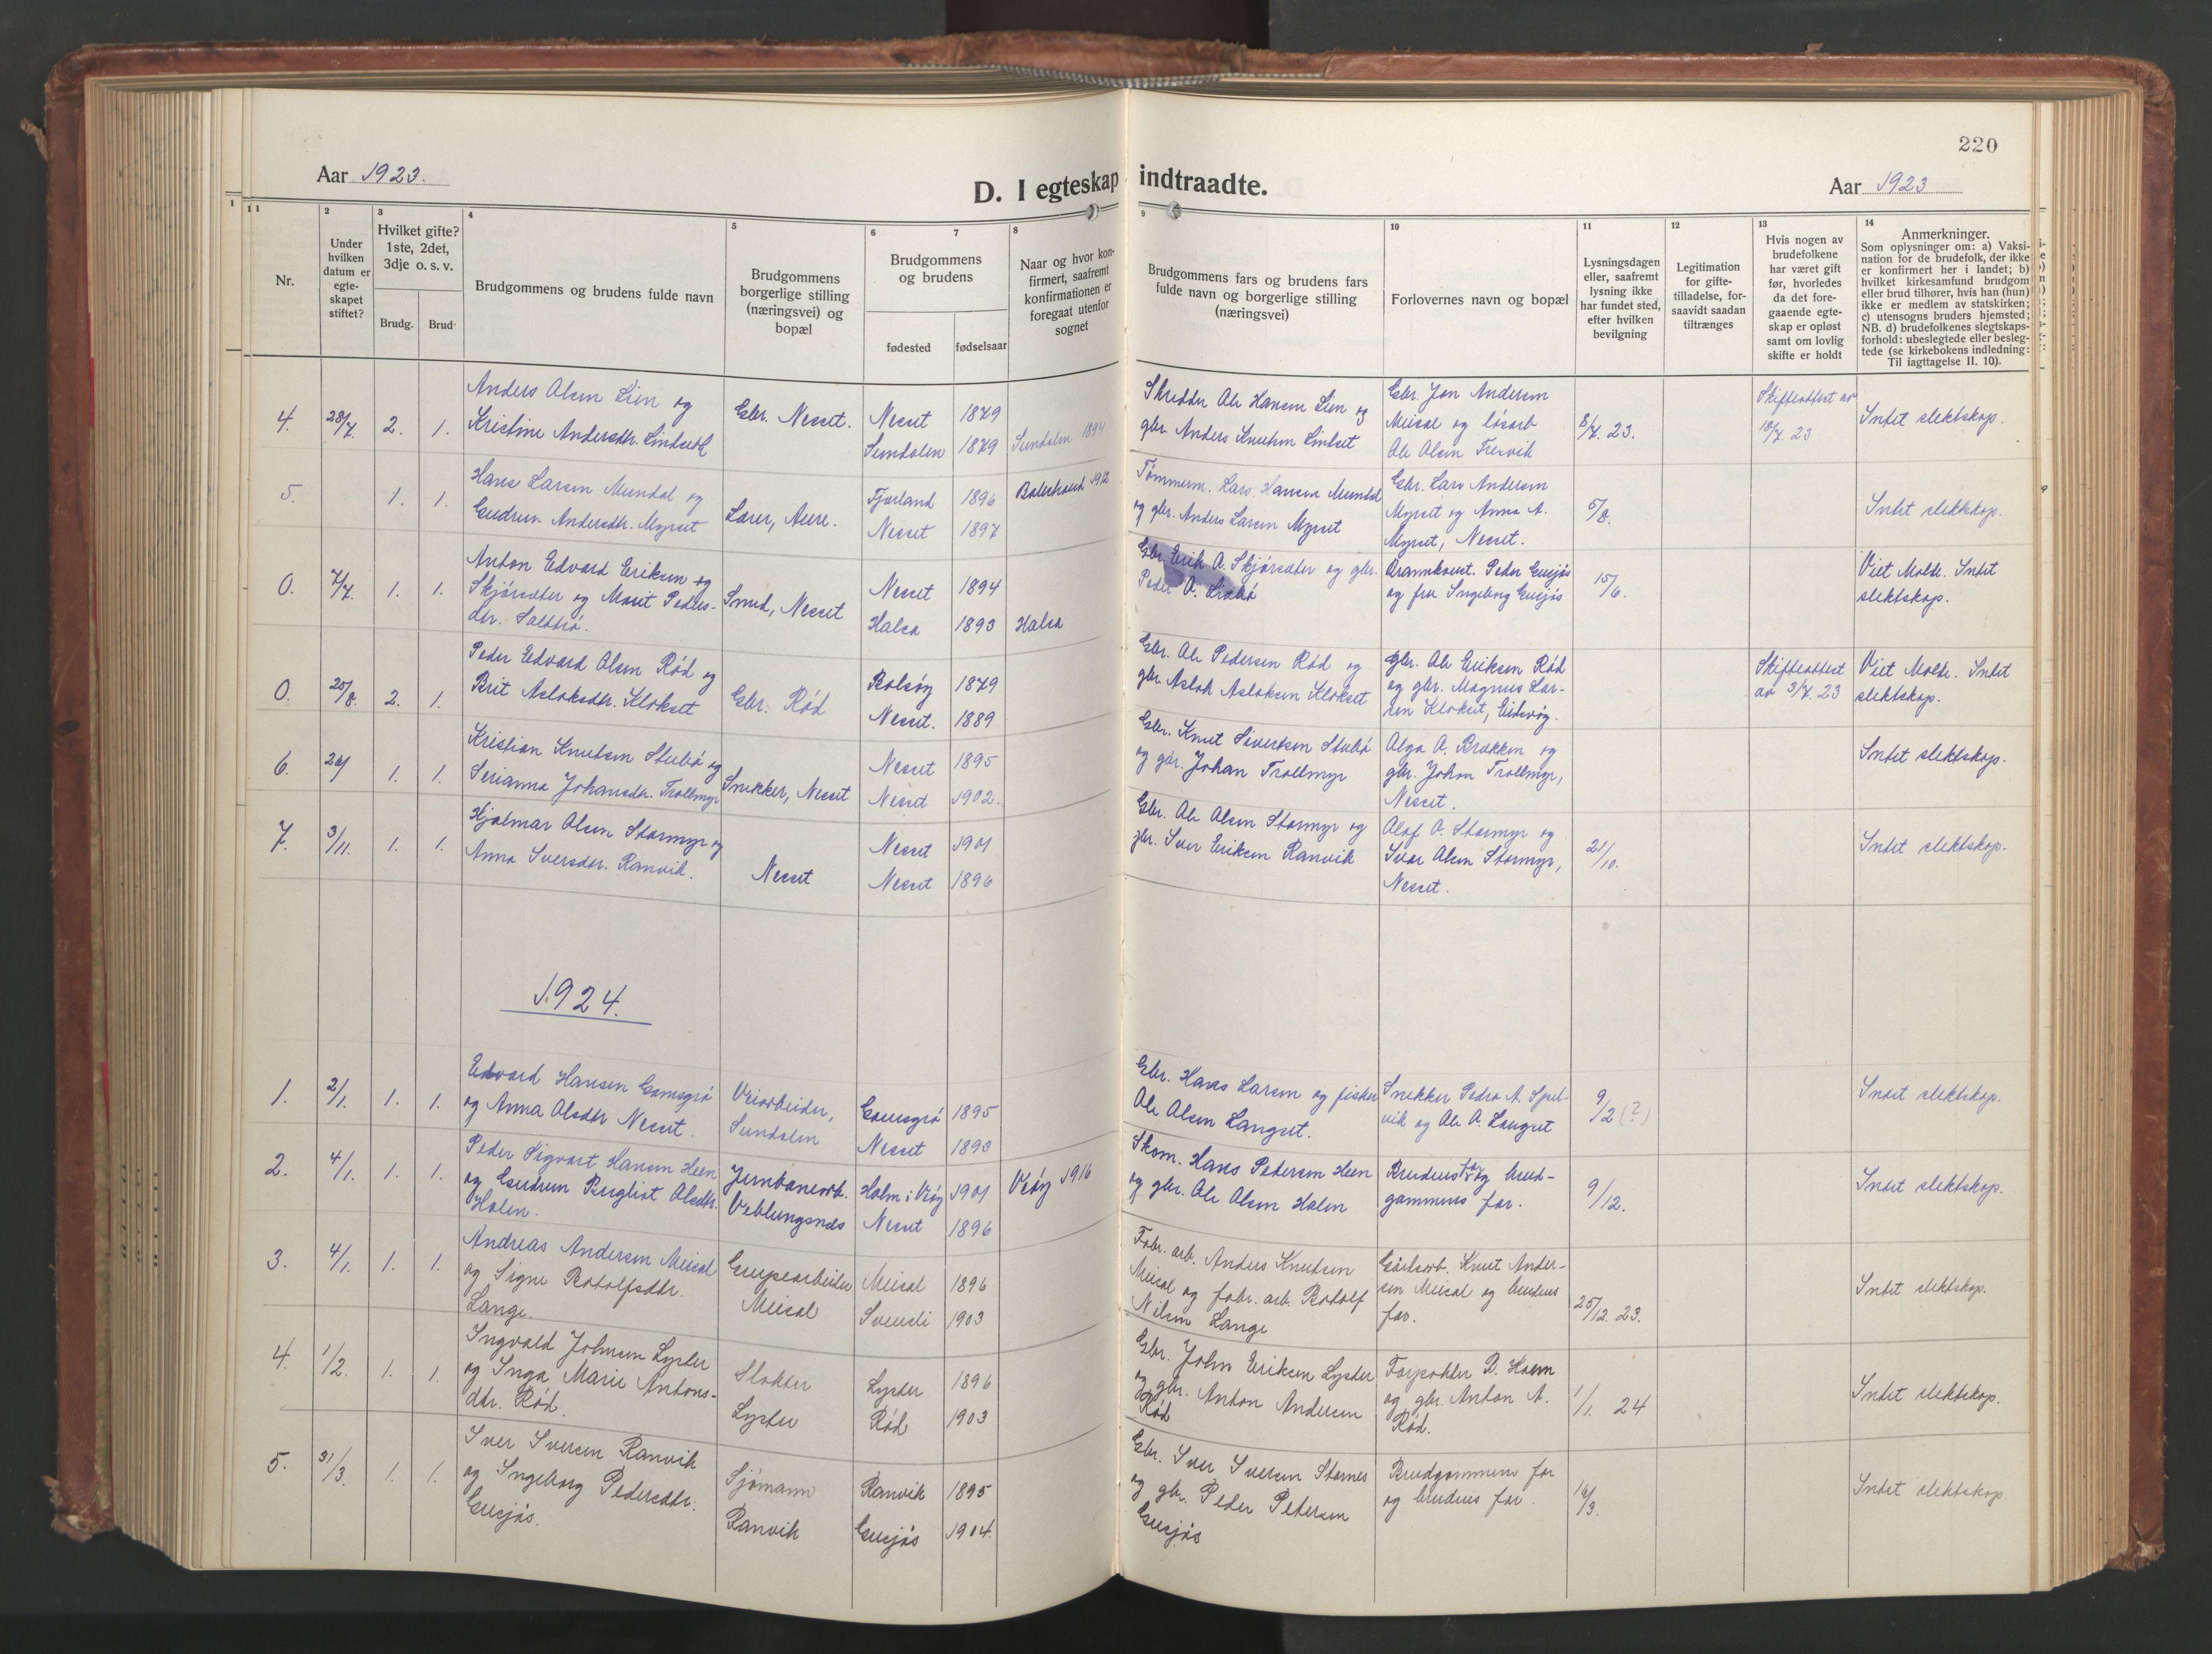 220
Aar 1923.
D. I egteskap indtraadte.
Aar 1923
1
1 1
2
3
4
5
6
7
8
9
10
11
12
13
14
Nr.
Under
hvilken
datum er
egte-
skapet
stiftet?
Hvilket gifte?
1ste, 2det,
3dje o. s. v.
Brudg.
Brud.
Brudgommens og brudens fulde navn
Brudgommens
borgerlige stilling
(næringsvei) og
bopæl
Brudgommens
og brudens
fødested
fødselsaar
Naar og hvor kon-
firmert, saafremt
konfirmationen er
foregaat utenfor
sognet
Brudgommens fars og brudens fars
fulde navn og borgerlige stilling
(næringsvei)
Forlovernes navn og bopæl
Lysningsdagen
eller, saafremt
lysning ikke
har fundet sted,
efter hvilken
bevilgning
Legitimation
for gifte-
tilladelse, for-
saavidt saadan
tiltrænges
Hvis nogen av
brudefolkene
har været gift
før, hvorledes
da det fore-
gaaende egte-
skap er opløst
samt om lovlig
skifte er holdt
Anmerkninger.
Som oplysninger om: a) Vaksi-
nation for de brudefolk, der ikke
er konfirmert her i landet; b)
hvilket kirkesamfund brudgom
eller brud tilhører, hvis han (hun)
ikke er medlem av statskirken;
c) utensogns bruders hjemsted;
NB. d) brudefolkenes slegtskaps-
forhold: ubeslegtede eller besleg-
tede (se kirkebokens indledning:
Til iagttagelse II. 10).
4.
28/7.
2.
1.
Anders Olsen Lien og
Kristine Andersdtr. Lindset
Gbr. Nesset.
Nesset 1879
Sundalen 1879
Sundalen 1894
Skredder Ole Hansen Lien og
gbr. Anders Knutsen Lindset
Gbr. Jon Andersen
Meisal og løsarb
Ole Olsen Tresvik
8/7. 23.
Skifteattest av
18/7. 23
Intet slektskap.
5.
1.
1.
Hans Larsen Mundal og
Gudrun Andersdtr. Myrset
Lærer, Aure.
Fjærland 1896
Nesset 1897
Balestrand 1912
Tømmerm. Lars Hansen Mundal
og gbr. Anders Larsen Myrset
Gbr. Lars Andersen
Myrset og Anna A.
Myrset, Nesset.
5/8.
Intet slektskap.
0.
7/7.
1.
1.
Anton Edvard Eriksen og
Skjørsæter og Marit Peders-
dtr.
Smed, Nesset
Nesset 1894
Halsa 1893
Halsa
Gbr. Erik A. Skjørsæter og gbr.
Peder A.
Brannkonst. Peder Gusjås
og fru Ingeborg Gusjås
15/6.
Viet Molde. Intet
slektskap.
0.
25/8.
2.
1.
Peder Edvard Olsen Rød og
Brit Aslaksdtr. Klokset
Gbr. Rød
Bolsøy 1879
Nesset. 1889
Gbr. Ole Pedersen Rød og
gbr Aslak Aslaksen Klokset
gbr. Ole Eriksen Rød
og gbr. Magnus Lar-
sen Klokset, Eidsvåg.
Skifteattest
av 3/7. 23
Viet Molde. Intet
slektskap.
6.
1.
1.
Kristian Knutsen Stubø og
Serianna Johansdtr. Trollmyr
Snekker, Nesset
Nesset 1895
Nesset 1902.
Gbr. Knut Sivertsen Stubø
og gbr. Johan Trollmyr
Olga A. Brakken og
gbr. Johan Trollmyr,
Nesset.
Intet slektskap.
7.
3/11.
1.
1.
Hjalmar Olsen Stormyr og
Anna Iversdtr. Ranvik.
Nesset
Nesset 1901
Nesset 1896
Gbr. Ole Olsen Stormyr og
gbr. Iver Eriksen Ranvik
Olaf O. Stormyr og
Ivar Olsen Stormyr,
Nesset.
21/10.
Intet slektskap.
1924.
1.
2/1.
1.
1.
Edvard Hansen
og Anna Olsdtr Nesset.
Veiarbeider,
Sundalen
1895
Nesset 1893
Gbr. Hans Larsen og fisker
Ole Olsen Langset.
Snekker Peder A. Spel-
vik og Ole O. Langset
9/2 (?)
Intet slektskap.
2.
4/1.
1.
1.
Peder Sigvart Hansen Heen
og Gudrun Bergliot Olsdtr.
Halen.
Jernbanearb.
Veblungsnes
Holm i Vêøy 1901
Nesset 1896
Vêøy 1916
Skom. Hans Pedersen Heen
og gbr. Ole Olsen Halen
Brudens far og brud-
gommens far.
9/12.
Intet slektskap.
3.
4/1.
1.
1.
Andreas Andersen Meisal
og Signe Rodolfsdtr.
Lange.
Meisal
Meisal 1896
1903
Fabr. arb. Anders Knutsen
Meisal og fabr. arb. Rodolf
Nilsen Lange
Gårdsarb. Knut Ander-
sen Meisal og brudens
far.
25/12. 23.
Intet slektskap.
4.
1/2.
1.
1.
Ingvald Johnsen Lyster
og Inga Marie Antons-
dtr. Rød.
Slakter
Lyster
Lyster 1896
Rød 1903
Gbr. John Eriksen Lyster
og gbr. Anton Andersen
Rød
Forpakter B. Hoem
og gbr. Anton A.
Rød.
1/1. 24
Intet slektskap.
5.
31/3.
1.
1.
Iver Iversen Ranvik
og Ingeborg Pedersdtr.
Gusjås.
Sjømann
Ranvik
Ranvik 1895
Gusjås 1904.
Gbr. Iver Iversen Starnes
og gbr. Peder Petersen
Gusjås
Brudgommens far
og brudens far.
16/3.
Intet slektskap.